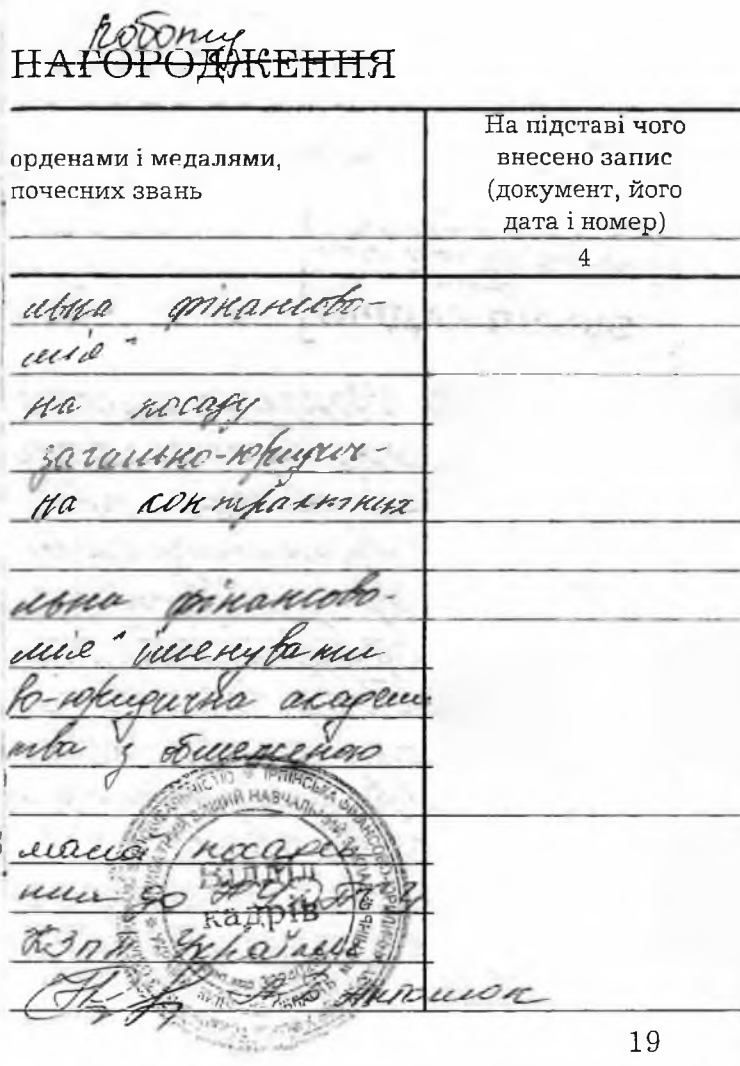 Роботу
НАГОРОДЖЕННЯ
орденами і медалями,
почесних звань
На підставі чого
внесено запис
(документ, його
дата і номер)
4
льна фінансово-
мія"
на посаду
загально-юридич-
на контрактних
льна фінансово-
мія" іменувати
во-юридична академ
тва з обмеженою
посади
Відділ
кадрів
КЗпП України
Антошок
19